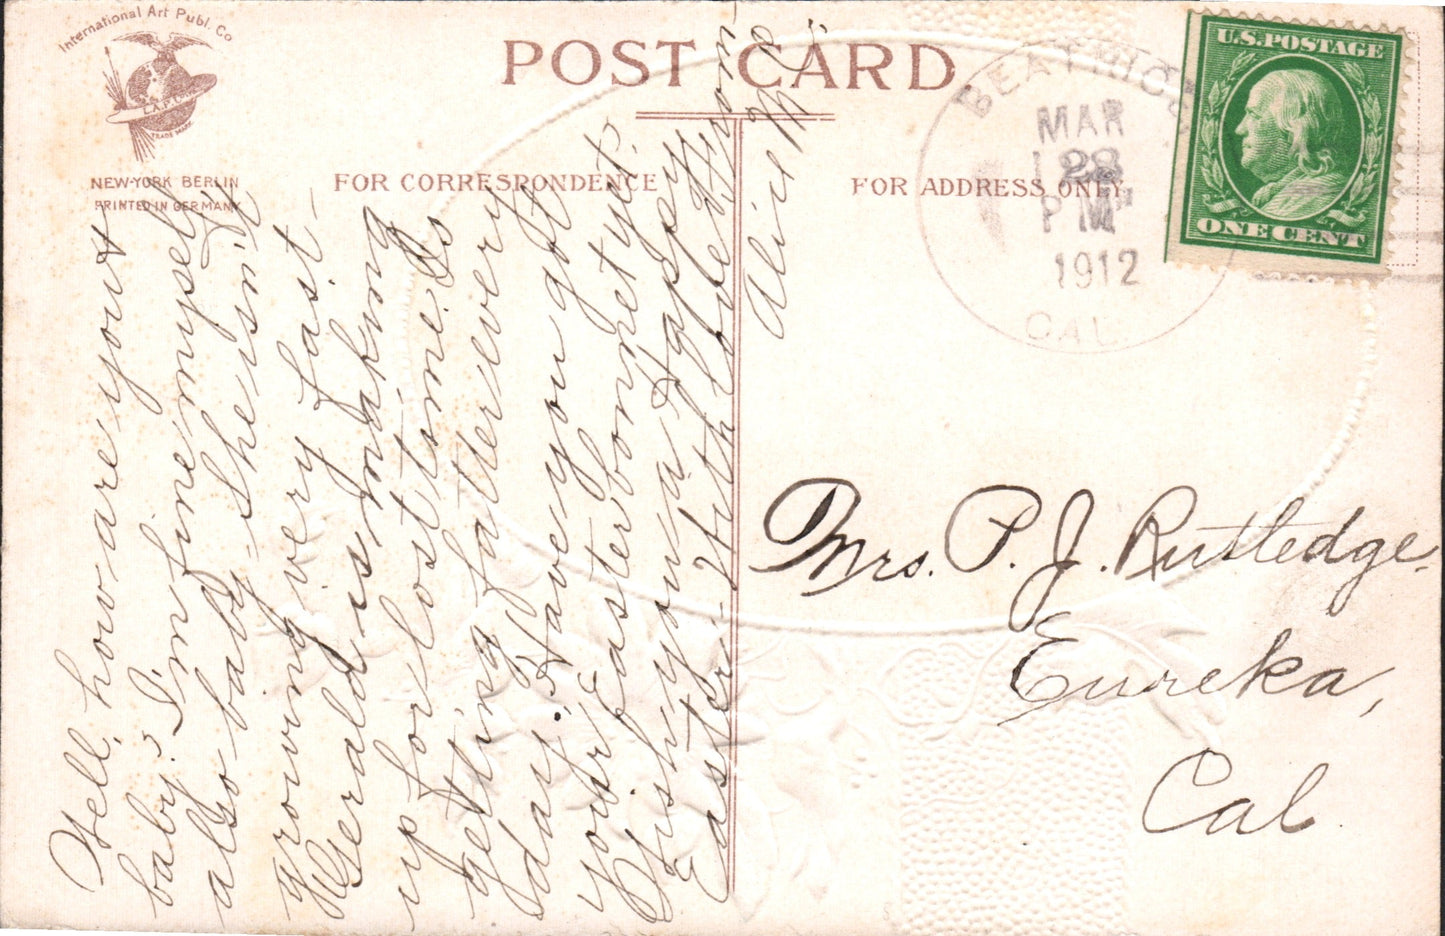 International Art Publ. Co
I.A.P.Co.
TRADE MARK
NEW-YORK BERLIN
PRINTED IN GERMANY
POST CARD
FOR CORRESPONDENCE
FOR ADDRESS ONLY
BEATRICE
MAR
28
PM
1912
CAL.
U.S.POSTAGE
ONE CENT
Well, how are you &
baby? I'm fine myself
also baby - She isn't
growing very fast -
Gerald is making
up for lost time. Is
getting fatter every
day. Have you got
your Easter bonnet yet?
Wish you a Happy
Easter - With love from
Alice
Mrs. P. J. Rutledge.
Eureka,
Cal.